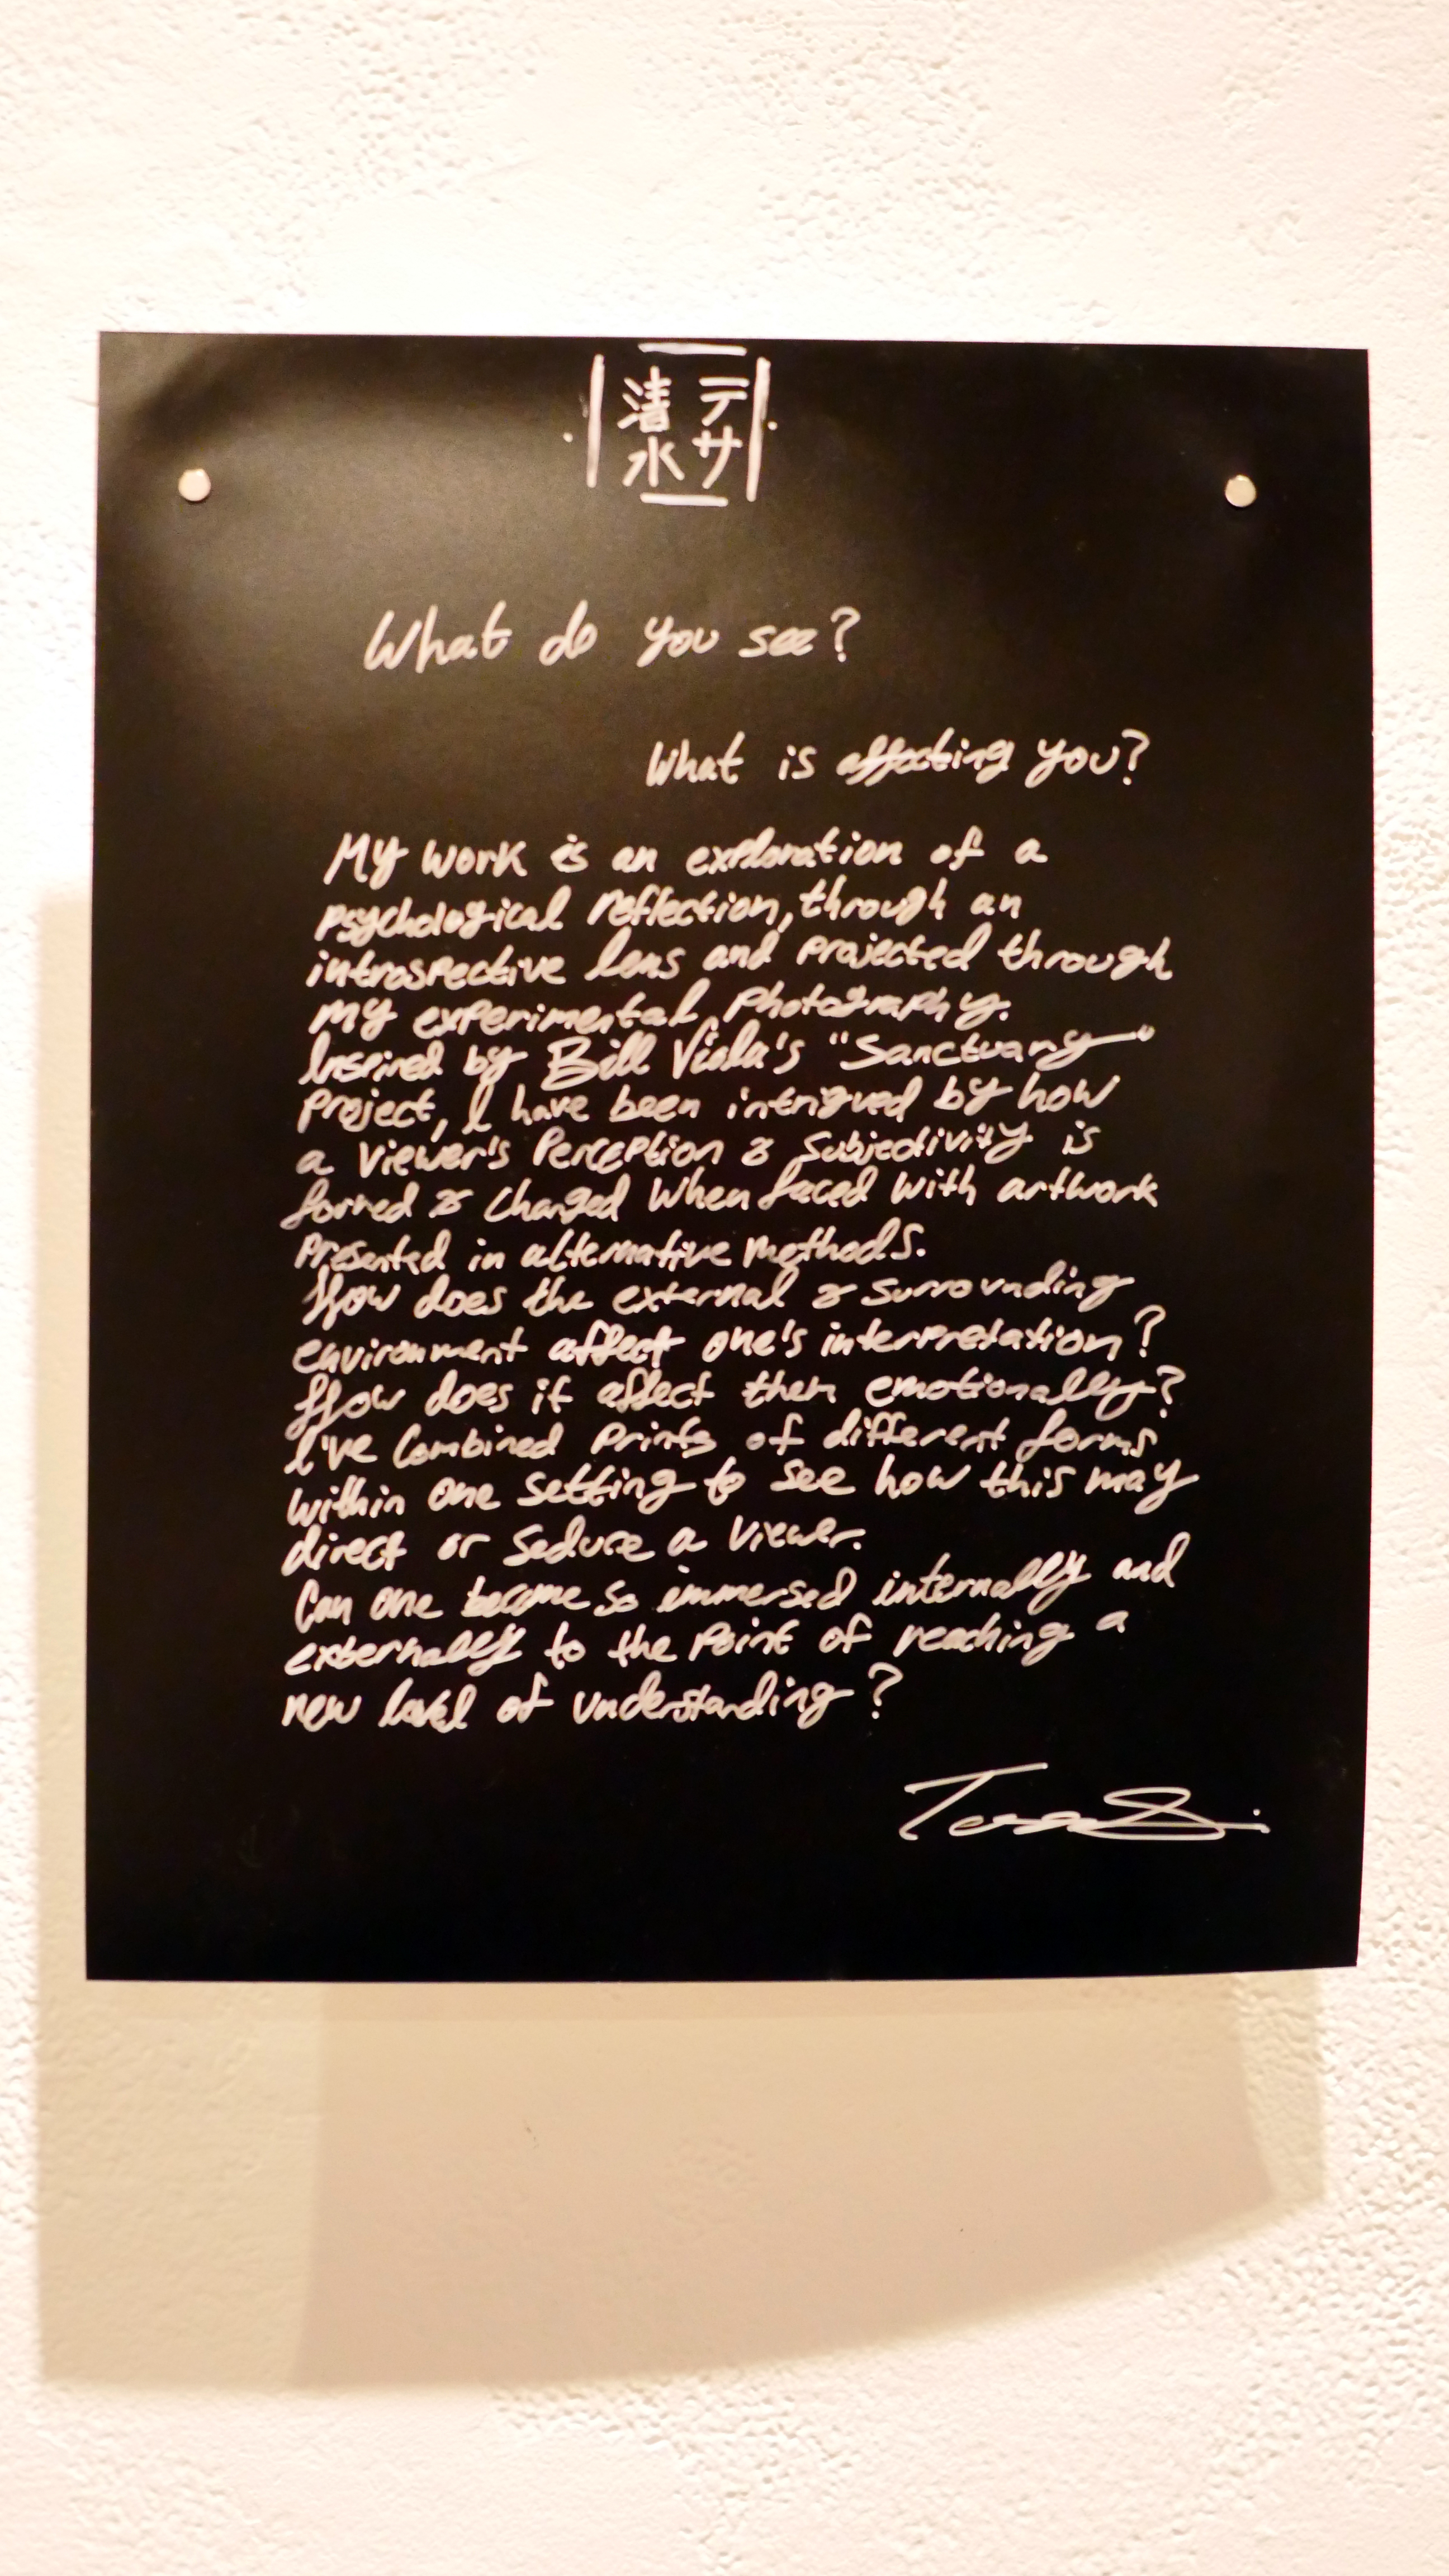 テサ
清水
What do you see?
What is affecting you?
My work is an exploration of a
psychological reflection, through an
introspective lens and projected through
my experimental photography.
Inspired by Bill Viola's "Sanctuary"
project, I have been intrigued by how
a viewer's perception & subjectivity is
formed & changed when faced with artwork
presented in alternative methods.
How does the external & surrounding
environment affect one's interpretation?
How does it affect them emotionally?
I've combined prints of different forms
within one setting to see how this may
direct or seduce a viewer.
Can one become so immersed internally and
externally to the point of reaching a
new level of understanding?